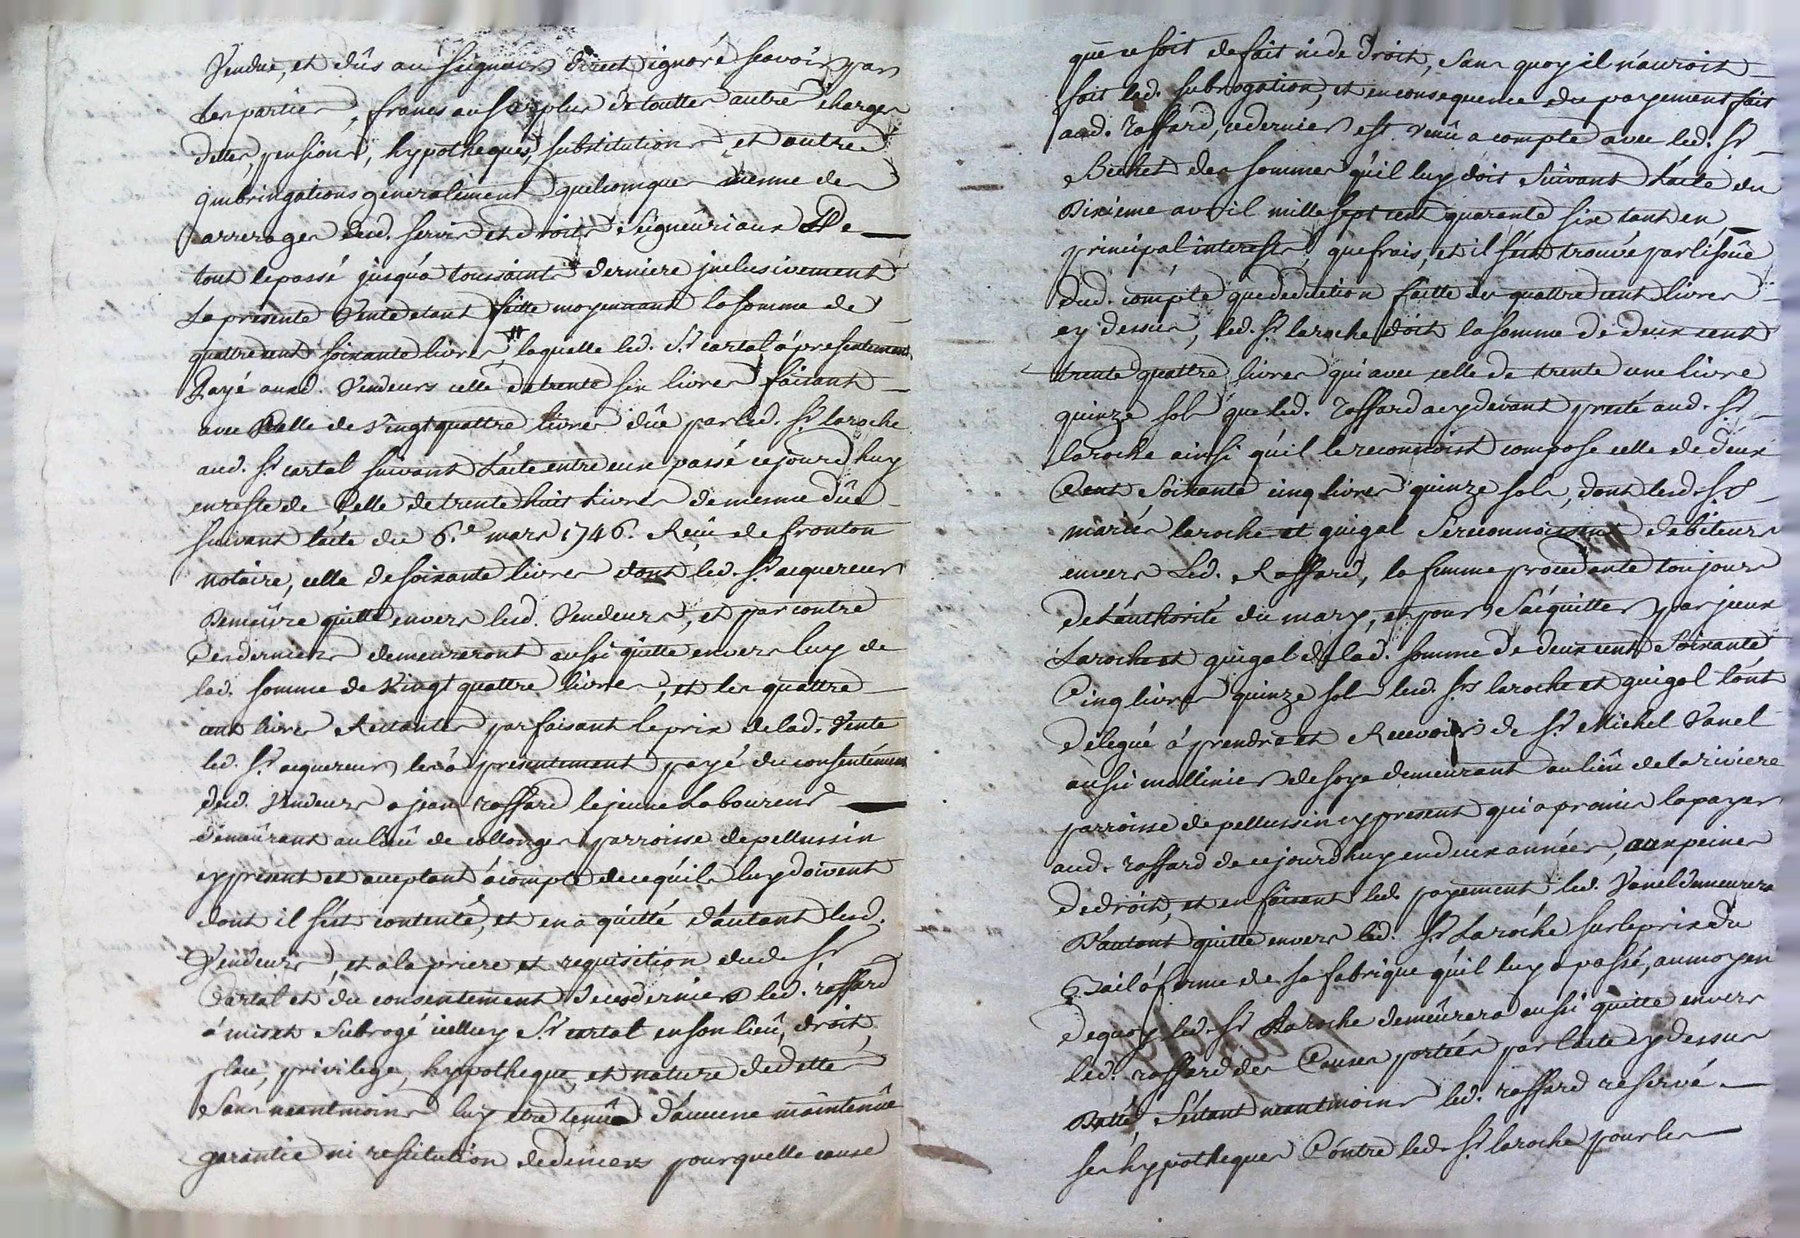 Vendue, et dûs au seigneur direct ignoré scavoir par
les parties, francs au surplus de touttes autre charges
dettes, pensions, hypotheques, substitutions et autre
generalement quelconques mesme des
arrerages desd. servis et droits seigneuriaux De
tout le passé jusqu'a toussaint derniere inclusivement
La presente Vente etant faitte moyennant la somme de
quattre cent soixante livres laquelle led. Sr. cartal a presentement
Payé auxd. Vendeurs celle de trente six livres faisant
avec Celle de Vingt quattre livres dûe par led. Sr. laroche
aud. Sr. cartal suivant l'acte entre eux passé ce jourd'huy
en reste de Celle de trente huit livres de mesme dûe
suivant l'acte du 6.e mars 1746. Reçû de fronton
notaire, celle de soixante livres dont led. Sr. acquereur
Demeure quitte envers lesd. Vendeurs, et par contre
Ces derniers demeureront aussi quitte envers luy de
lad. somme de Vingt quattre livres, et les quattre
cent livres Restantes parfaisant le prix de lad. Vente
led. Sr. acquereur les a presentement payé du consentement
desd. Vendeurs a jean raffard le jeune Laboureur
demeurant au lieu de collonges parroisse de pellussin
cy present et acceptant a compte de ce qu'ils luy doivent
dont il s'est contenté, et en a quitté d'autant lesd.
Vendeurs, et a la priere et requisition dud. Sr.
Cartal et du consentement de ces derniers led. raffard
a mis et Subrogé icelluy Sr. cartal en son lieu, droit,
place, privilege, hypotheque, et nature de dette
Sans neantmoins luy etre tenû d'aucune maintenüe
garantie ni restitution de deniers pour quelle cause
que ce soit de fait ni de droit, sans quoy il n'auroit
fait lad. subrogation, et en consequence du payement fait
aud. raffard, ce dernier est venû a compte avec led. Sr.
Bechet des sommes qu'il luy doit suivant l'acte du
Dixieme avril mille sept cent quarante six tant en
principal interests que frais, et il s'est trouvé par l'issüe
dud. compte que deduction faitte des quattre cent livres
cy dessus, led. Sr. laroche doit la somme de deux cent
trente quattre livres qui avec celle de trente une livre
quinze sols que led. raffard a cy devant presté aud. Sr.
laroche ainsi qu'il le reconnoist compose celle de deux
Cent soixante cinq livres quinze sols, dont lesd. Srs.
mariés laroche et guigal se reconnoissent debiteurs
envers Led. Raffard, la femme procedante toujours
de l'authorité du mary, et pour s'acquitter par iceux
Laroche et guigal de lad. somme de deux cent soixante
Cinq livres quinze sols lesd. Srs. laroche et guigal l'ont
delegué a prendre et Recevoir de Sr. Michel Vanel
aussi mollinier de soye demeurant au lieu de la riviere
parroisse de pellussin cy present qui a promis la payer
aud. raffard de ce jourd'huy en deux années, aux peines
de droit, et en faisant led. payement led. Vanel demeurera
D'autant quitte envers led. Sr. Laroche sur le prix du
Bail a ferme de sa fabrique qu'il luy a passé, au moyen
de quoy led. Sr. Laroche demeurera aussi quitte envers
led. raffard des Causes portées par l'acte cy dessus
Datté s'etant neantmoins led. raffard reservé
ses hypotheques Contre led. Sr. laroche pour les